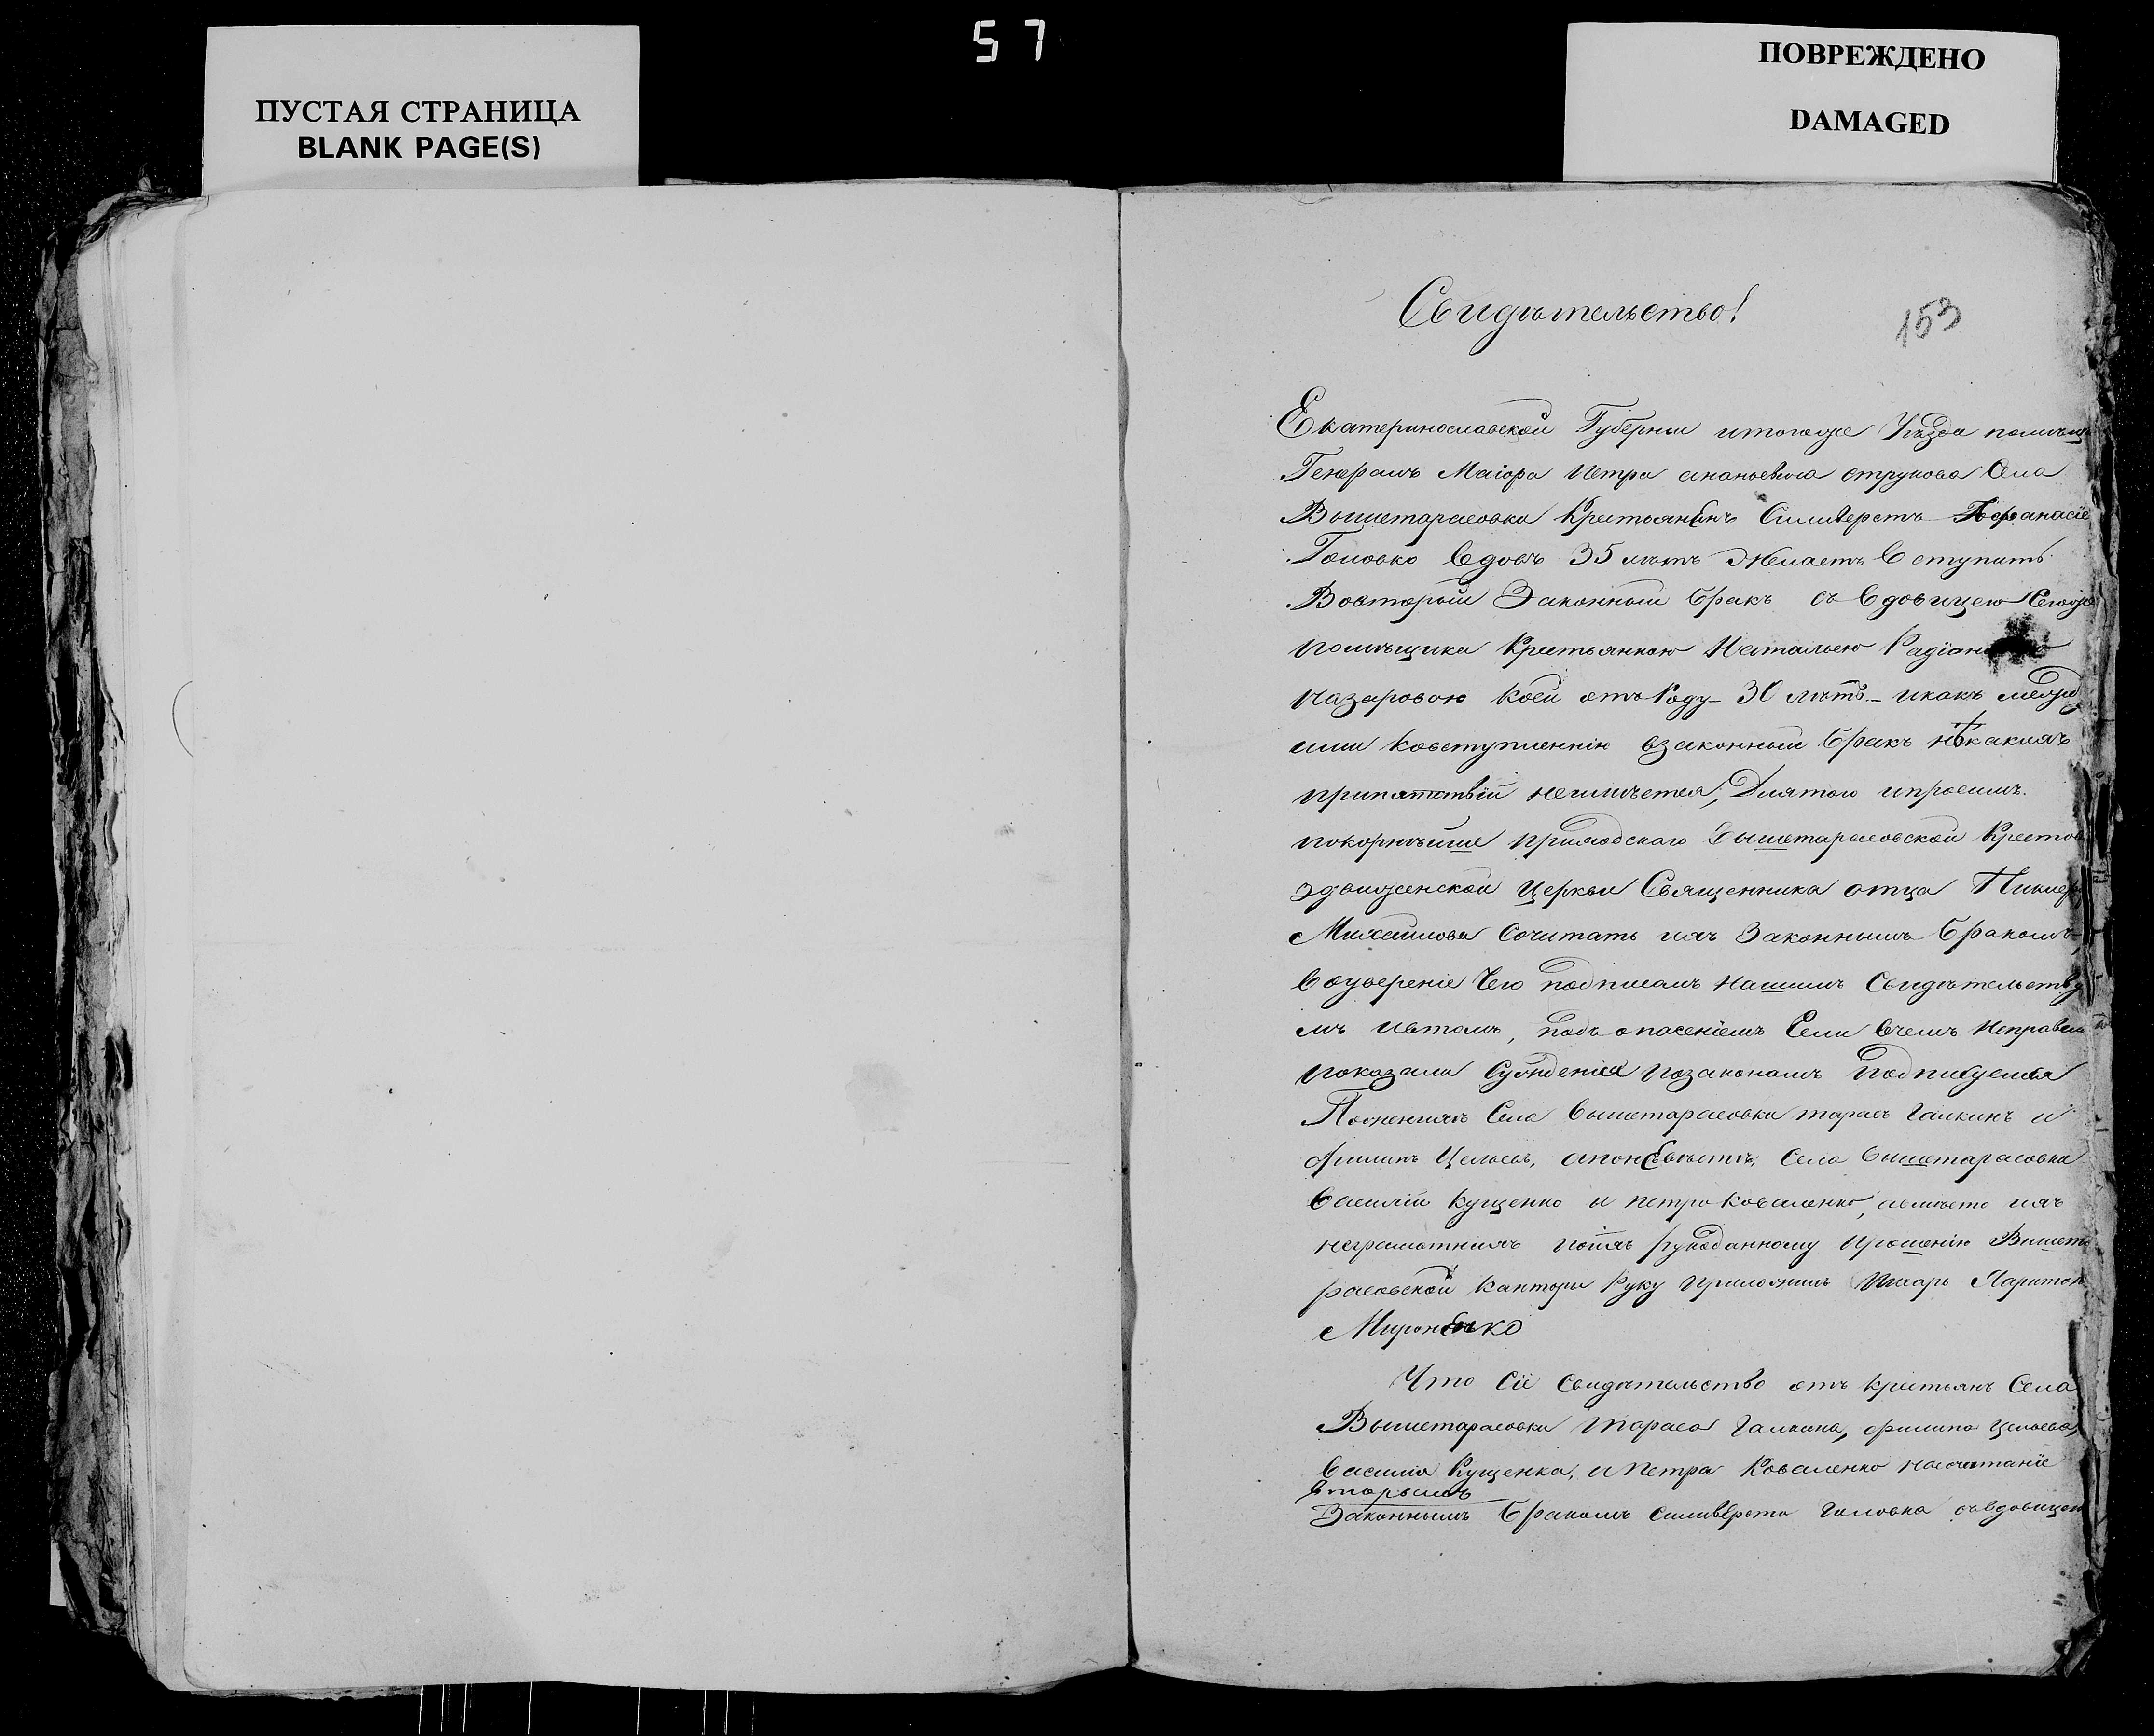 57
ПУСТАЯ СТРАНИЦА
BLANK PAGE(S)
ПОВРЕЖДЕНО
DAMAGED
Свидѣтельство!
153
Екатеринославской Губернии итогоже Уѣзда помѣщ
Генералъ Маіора Петра ананьевича струкова Села
Вышетарасовки Крестьянинъ Силиверстъ
Головко Вдовъ 35 лѣтъ Желаетъ Вступить
Вовторый Законный бракъ съ Вдовицею Егоже
помѣщика Крестьянкою Натальею Радіон
Назаровою коей отъ Роду 30 лѣтъ икакъ межд
ими ковступленнію взаконный бракъ нѣкакихъ
припятствій неимѣется, Длятого ипросимъ
покорнѣйше приходскаго Вышетарасовской Кресто
здвиженской Церкви Священника отца
Михаилова Сочитать ихъ Законнымъ бракомъ
Воуверение Чего подписомъ Нашимъ Свидѣтельству
мъ Ивтомъ, подъ опасеніемъ Если Вчемъ Неправел
показали Суждения позаконамъ подписуемся
Села Вышетарасовки тарасъ Галкинъ и
филипъ Села Вышетарасовки
Василій Кущенко и петро Коваленко, авместо ихъ
неграмотнихъ поихъ рукоданному прошенію Вишета
расовской Канторы Руку приложилъ Писарь Харитон
Мироненко
Что Сіе Свидѣтельство отъ крестьянъ Села
Вышетарасовки тараса Галкина, филипа
Василия Кущенка, и Петра Коваленко насочитаніе
вторымъ
Законнымъ бракомъ Силиверста Головка съвдовицею